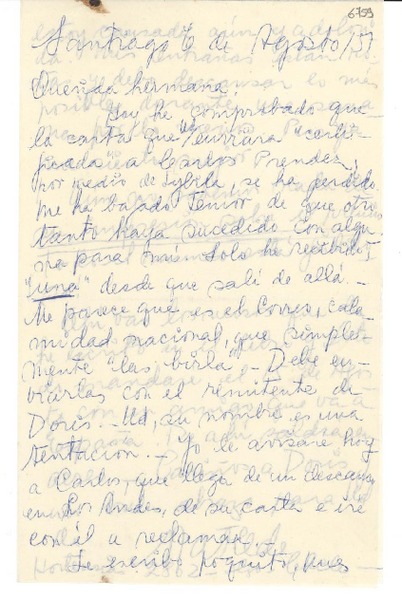 6759
Santiago 6 de Agosto/51
Querida hermana:
he comprobado que
la carta que Ud enviara "certi-
ficada" a Carlos Prendez,
por medio de Sybila, se ha perdido.
Me ha bajado temor de que otro
tanto haya sucedido con algu-
na para mí. Solo he recibido
"una" desde que salí de allá. –
Me parece que es el Correo, cala-
midad nacional, que simple-
mente "las birla" – Debe en-
viarlas con el remitente de
Doris. – Ud, su nombre es una
tentación. – Yo le avisaré hoy
a Carlos, que llega de un descanso
en Los Andes, de su carta e iré
con él a reclamar. –
Le escribo poquito, pues